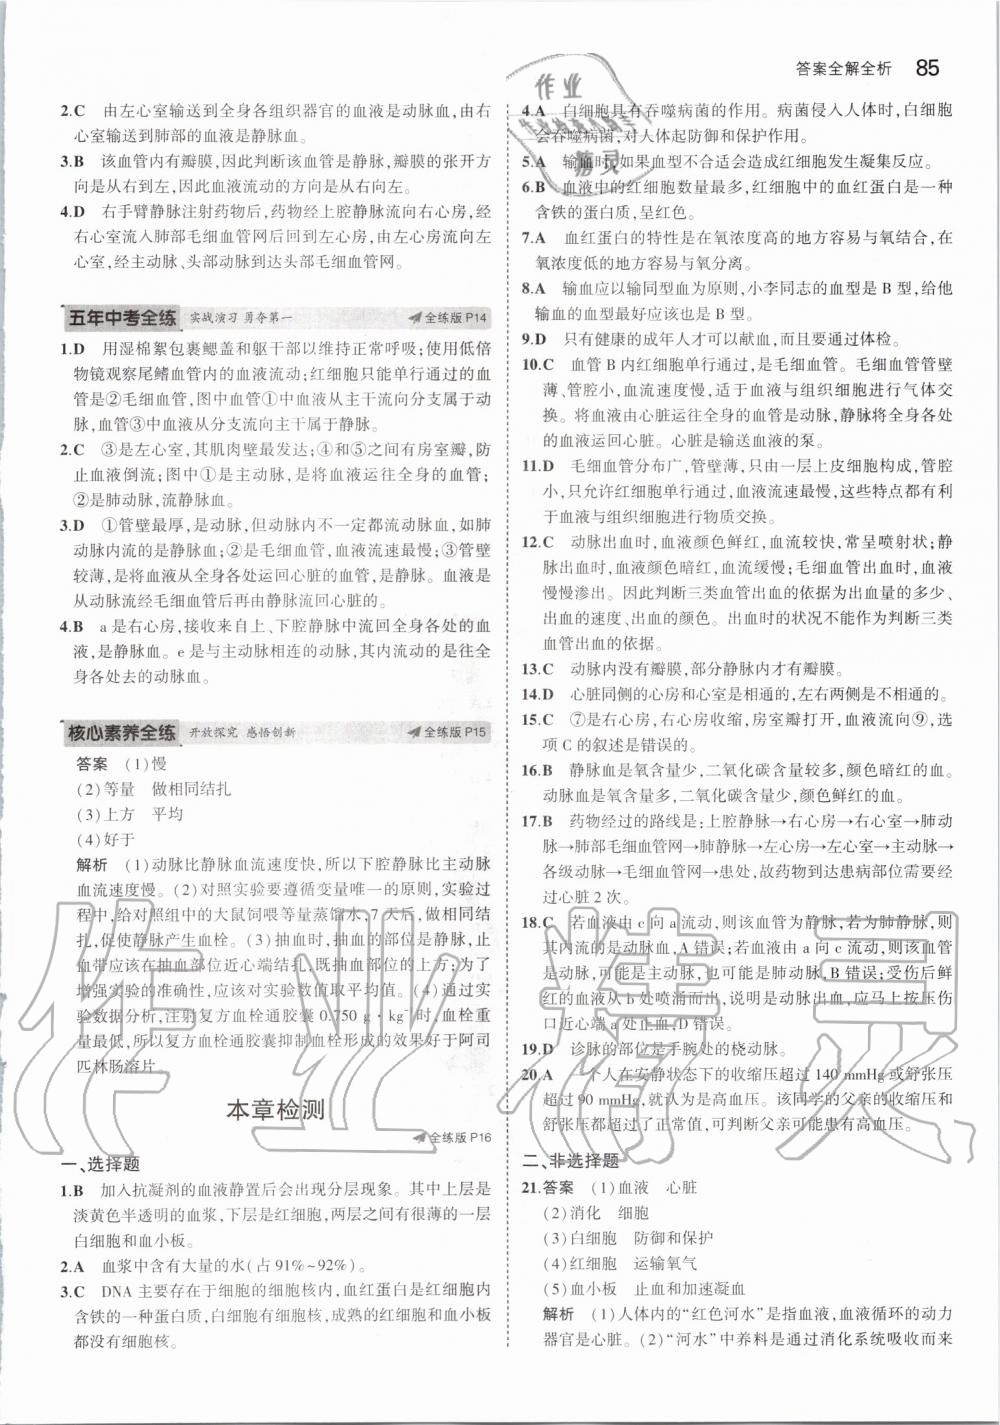 答案全解全析 85
2.C 由左心室输送到全身各组织器官的血液是动脉血,由右
心室输送到肺部的血液是静脉血。
3.B 该血管内有瓣膜,因此判断该血管是静脉,瓣膜的张开方
向是从右到左,因此血液流动的方向是从右向左。
4.D 右手臂静脉注射药物后,药物经上腔静脉流向右心房,经
右心室流入肺部毛细血管网后回到左心房,由左心房流向左
心室,经主动脉、头部动脉到达头部毛细血管网。
五年中考全练 实战演习 勇夺第一 全练版 P14
1.D 用湿棉絮包裹鳃盖和躯干部以维持正常呼吸;使用低倍
物镜观察尾鳍血管内的血液流动;红细胞只能单行通过的血
管是②毛细血管,图中血管①中血液从主干流向分支属于动
脉,血管③中血液从分支流向主干属于静脉。
2.C ③是左心室,其肌肉壁最发达;④和⑤之间有房室瓣,防
止血液倒流;图中①是主动脉,是将血液运往全身的血管;
②是肺动脉,流静脉血。
3.D ①管壁最厚,是动脉,但动脉内不一定都流动脉血,如肺
动脉内流的是静脉血;②是毛细血管,血液流速最慢;③管壁
较薄,是将血液从全身各处运回心脏的血管,是静脉。血液是
从动脉流经毛细血管后再由静脉流回心脏的。
4.B a是右心房,接收来自上、下腔静脉中流回全身各处的血
液,是静脉血。e是与主动脉相连的动脉,其内流动的是往全
身各处去的动脉血。
核心素养全练 开放探究 感悟创新 全练版 P15
答案 (1)慢
(2)等量 做相同结扎
(3)上方 平均
(4)好于
解析 (1)动脉比静脉血流速度快,所以下腔静脉比主动脉
血流速度慢。(2)对照实验要遵循变量唯一的原则,实验过
程中,给对照组中的大鼠饲喂等量蒸馏水,7天后,做相同结
扎,促使静脉产生血栓。(3)抽血时,抽血的部位是静脉,止
血带应该在抽血部位近心端结扎,既抽血部位的上方;为了
增强实验的准确性,应该对实验数值取平均值。(4)通过实
验数据分析,注射复方血栓通胶囊0.750 g·kg⁻¹时,血栓重
量最低,所以复方血栓通胶囊抑制血栓形成的效果好于阿司
匹林肠溶片。
本章检测
全练版 P16
一、选择题
1.B 加入抗凝剂的血液静置后会出现分层现象。其中上层是
淡黄色半透明的血浆,下层是红细胞,两层之间有很薄的一层
白细胞和血小板。
2.A 血浆中含有大量的水(占91%~92%)。
3.C DNA主要存在于细胞的细胞核内,血红蛋白是红细胞内
含铁的一种蛋白质,白细胞有细胞核,成熟的红细胞和血小板
都没有细胞核。
4.A 白细胞具有吞噬病菌的作用。病菌侵入人体时,白细胞
会吞噬病菌,对人体起防御和保护作用。
5.A 输血时,如果血型不合适会造成红细胞发生凝集反应。
6.B 血液中的红细胞数量最多,红细胞中的血红蛋白是一种
含铁的蛋白质,呈红色。
7.A 血红蛋白的特性是在氧浓度高的地方容易与氧结合,在
氧浓度低的地方容易与氧分离。
8.A 输血应以输同型血为原则,小李同志的血型是B型,给他
输血的血型最好应该也是B型。
9.D 只有健康的成年人才可以献血,而且要通过体检。
10.C 血管B内红细胞单行通过,是毛细血管。毛细血管管壁
薄,管腔小,血流速度慢,适于血液与组织细胞进行气体交
换。将血液由心脏运往全身的血管是动脉,静脉将全身各处
的血液运回心脏。心脏是输送血液的泵。
11.D 毛细血管分布广,管壁薄,只由一层上皮细胞构成,管腔
小,只允许红细胞单行通过,血液流速最慢,这些特点都有利
于血液与组织细胞进行物质交换。
12.C 动脉出血时,血液颜色鲜红,血流较快,常呈喷射状;静
脉出血时,血液颜色暗红,血流缓慢;毛细血管出血时,血液
慢慢渗出。因此判断三类血管出血的依据为出血量的多少、
出血的速度、出血的颜色。出血时的状况不能作为判断三类
血管出血的依据。
13.C 动脉内没有瓣膜,部分静脉内才有瓣膜。
14.D 心脏同侧的心房和心室是相通的,左右两侧是不相通的。
15.C ⑦是右心房,右心房收缩,房室瓣打开,血液流向⑨,选
项C的叙述是错误的。
16.B 静脉血是氧含量少,二氧化碳含量较多,颜色暗红的血。
动脉血是氧含量多,二氧化碳含量少,颜色鲜红的血。
17.B 药物经过的路线是:上腔静脉→右心房→右心室→肺动
脉→肺部毛细血管网→肺静脉→左心房→左心室→主动脉→
各级动脉→毛细血管网→患处,故药物到达患病部位需要经
过心脏2次。
18.C 若血液由c向a流动,则该血管为静脉,若为肺静脉,则
其内流的是动脉血,A错误;若血液由a向c流动,则该血管
是动脉,可能是主动脉,也可能是肺动脉,B错误;受伤后鲜
红的血液从b处喷涌而出,说明是动脉出血,应马上按压伤
口近心端a处止血,D错误。
19.D 诊脉的部位是手腕处的桡动脉。
20.A 一个人在安静状态下的收缩压超过140 mmHg或舒张压
超过90 mmHg,就认为是高血压。该同学的父亲的收缩压和
舒张压都超过了正常值,可判断父亲可能患有高血压。
二、非选择题
21.答案 (1)血液 心脏
(2)消化 细胞
(3)白细胞 防御和保护
(4)红细胞 运输氧气
(5)血小板 止血和加速凝血
解析 (1)人体内的“红色河水”是指血液,血液循环的动力
器官是心脏。(2)“河水”中养料是通过消化系统吸收而来
作业精灵